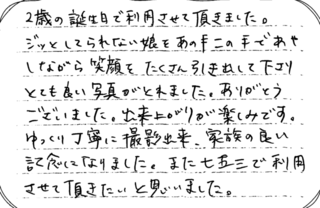 2歳の誕生日で利用させて頂きました。
ジッとしてられない娘をあの手この手であや
しながら笑顔をたくさん引き出して下さり
とても良い写真がとれました。ありがとう
ございました。出来上がりが楽しみです。
ゆっくり丁寧に撮影出来、家族の良い
記念になりました。また七五三で利用
させて頂きたいと思いました。